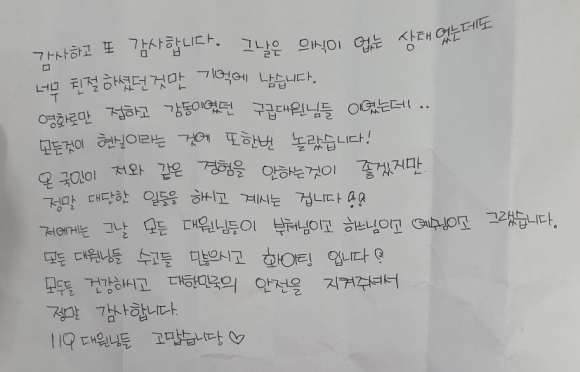 감사하고 또 감사합니다. 그날은 의식이 없는 상태였는데도
너무 친절하셨던것만 기억에 남습니다.
영화로만 접하고 감동이였던 구급대원님들 이였는데..
모든것이 현실이라는 것에 또한번 놀랐습니다!
온 국민이 저와 같은 경험을 안하는것이 좋겠지만
정말 대단한 일들을 하시고 계시는 겁니다!!
저에게는 그날 모든 대원님들이 부처님이고 하느님이고 예수님이고 그랬습니다.
모든 대원님들 수고들 많으시고 화이팅 입니다!
모두들 건강하시고 대한민국의 안전을 지켜주셔서
정말 감사합니다.
119 대원님들 고맙습니당♡